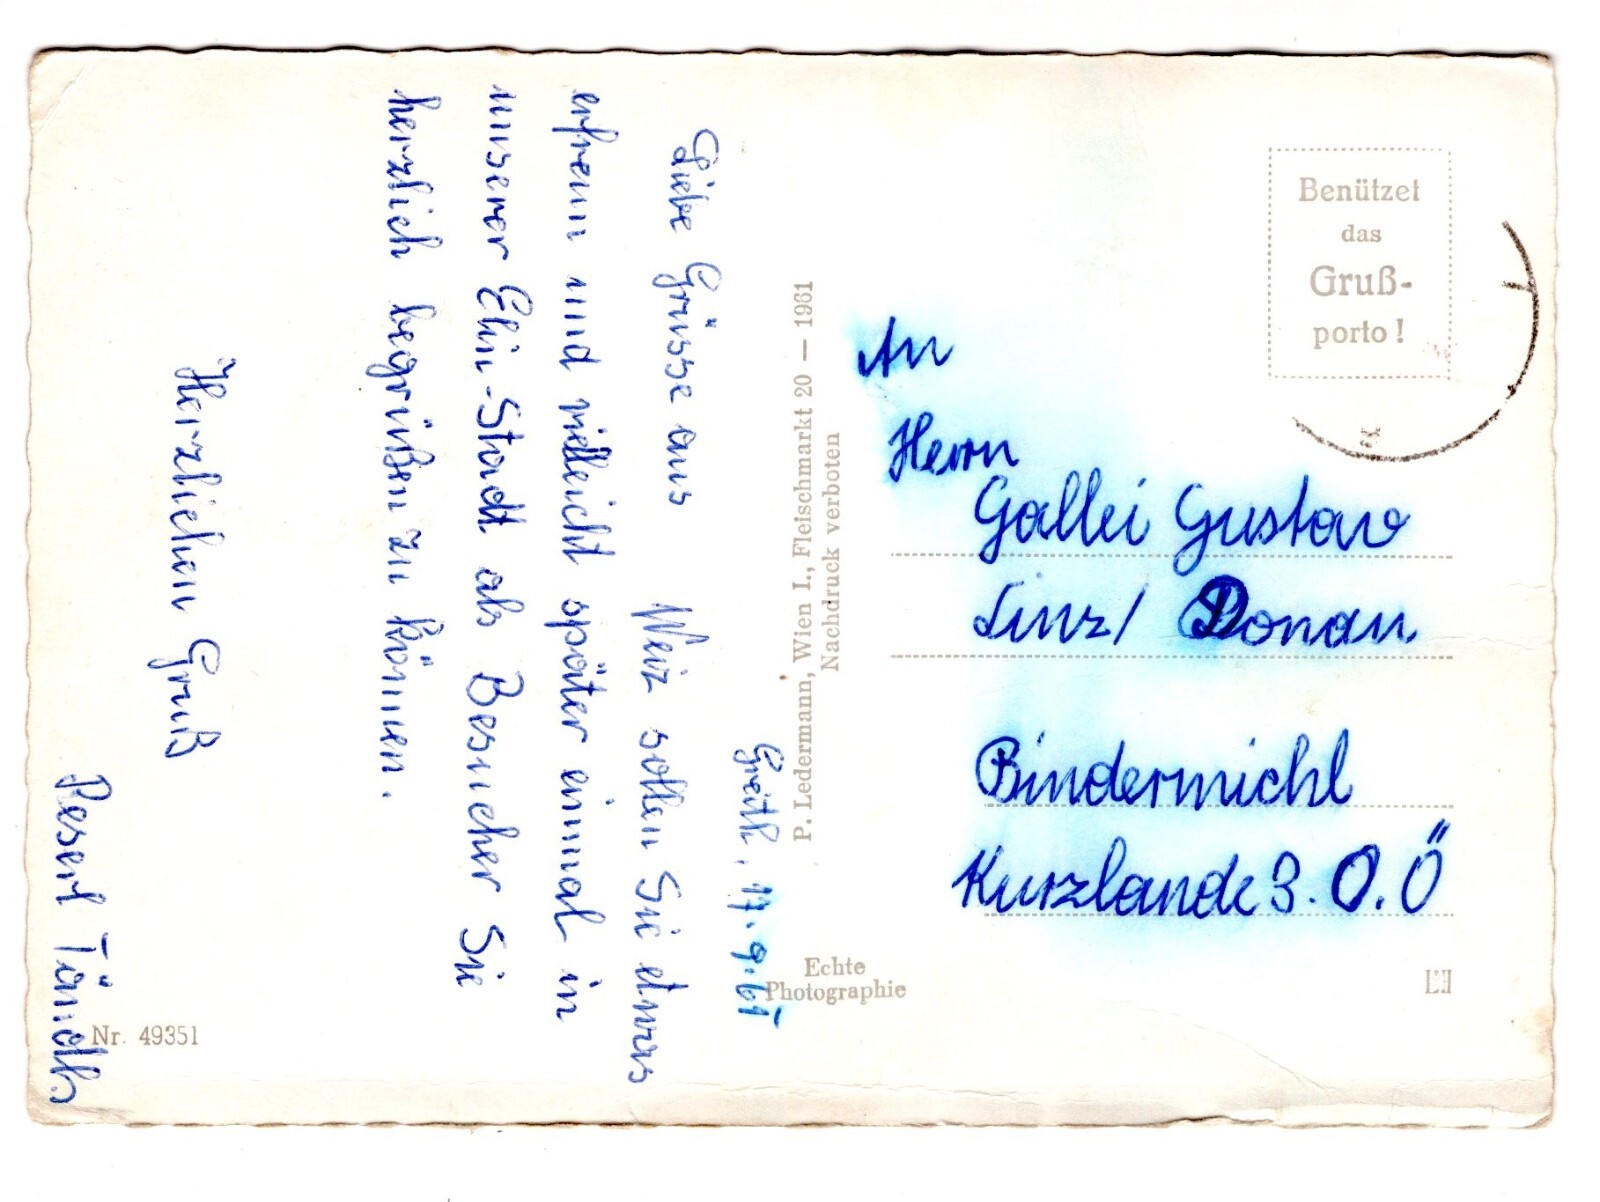 Greith, 17.9.61
Liebe Grüsse aus Weiz sollen Sie etwas
erfreun und vielleicht später einmal in
unserer Elin-Stadt als Besucher Sie
herzlich begrüßen zu können.
Herzlichen Gruß
P. Ledermann, Wien I., Fleischmarkt 20 — 1961
Nachdruck verboten
Benützet
das
Gruß-
porto!
An
Herrn
Gallei Gustav
Linz/ Donau.
Bindermichl
Kurzlande 3. O.Ö
Echte
Photographie
Nr. 49351